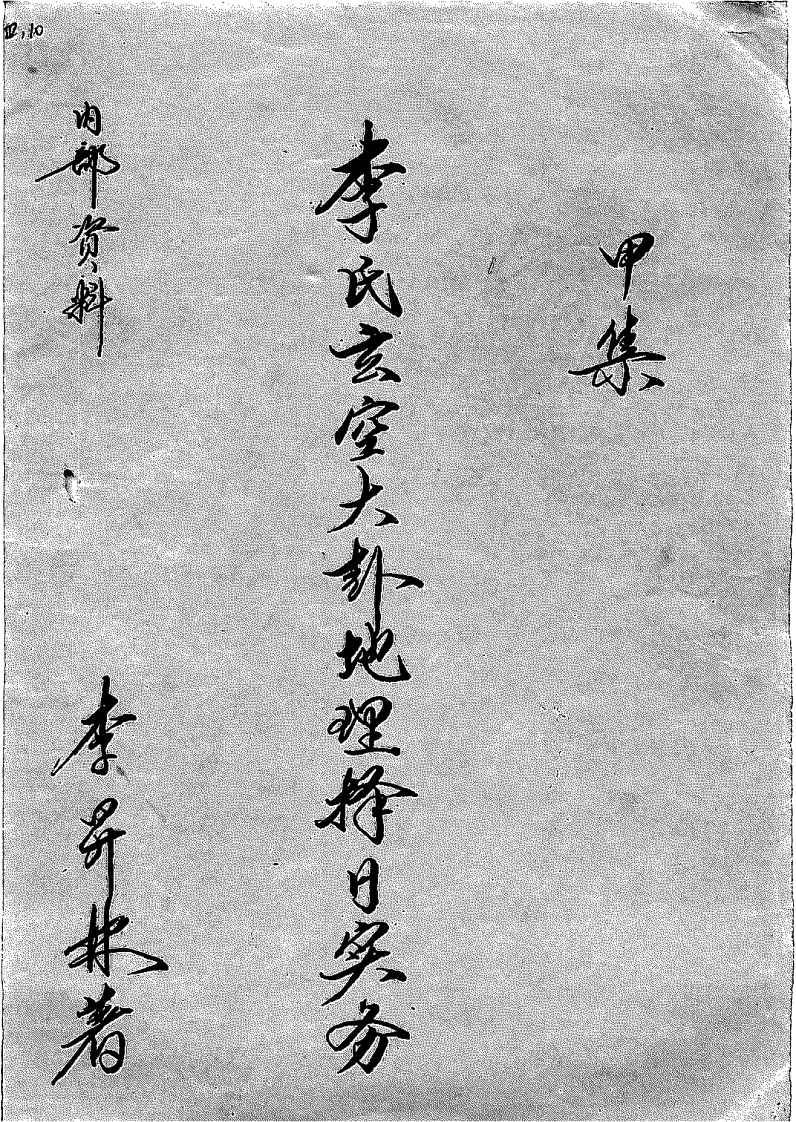 甲集
李氏玄空大卦地理择日实务
内部资料
李昇林著
III,10